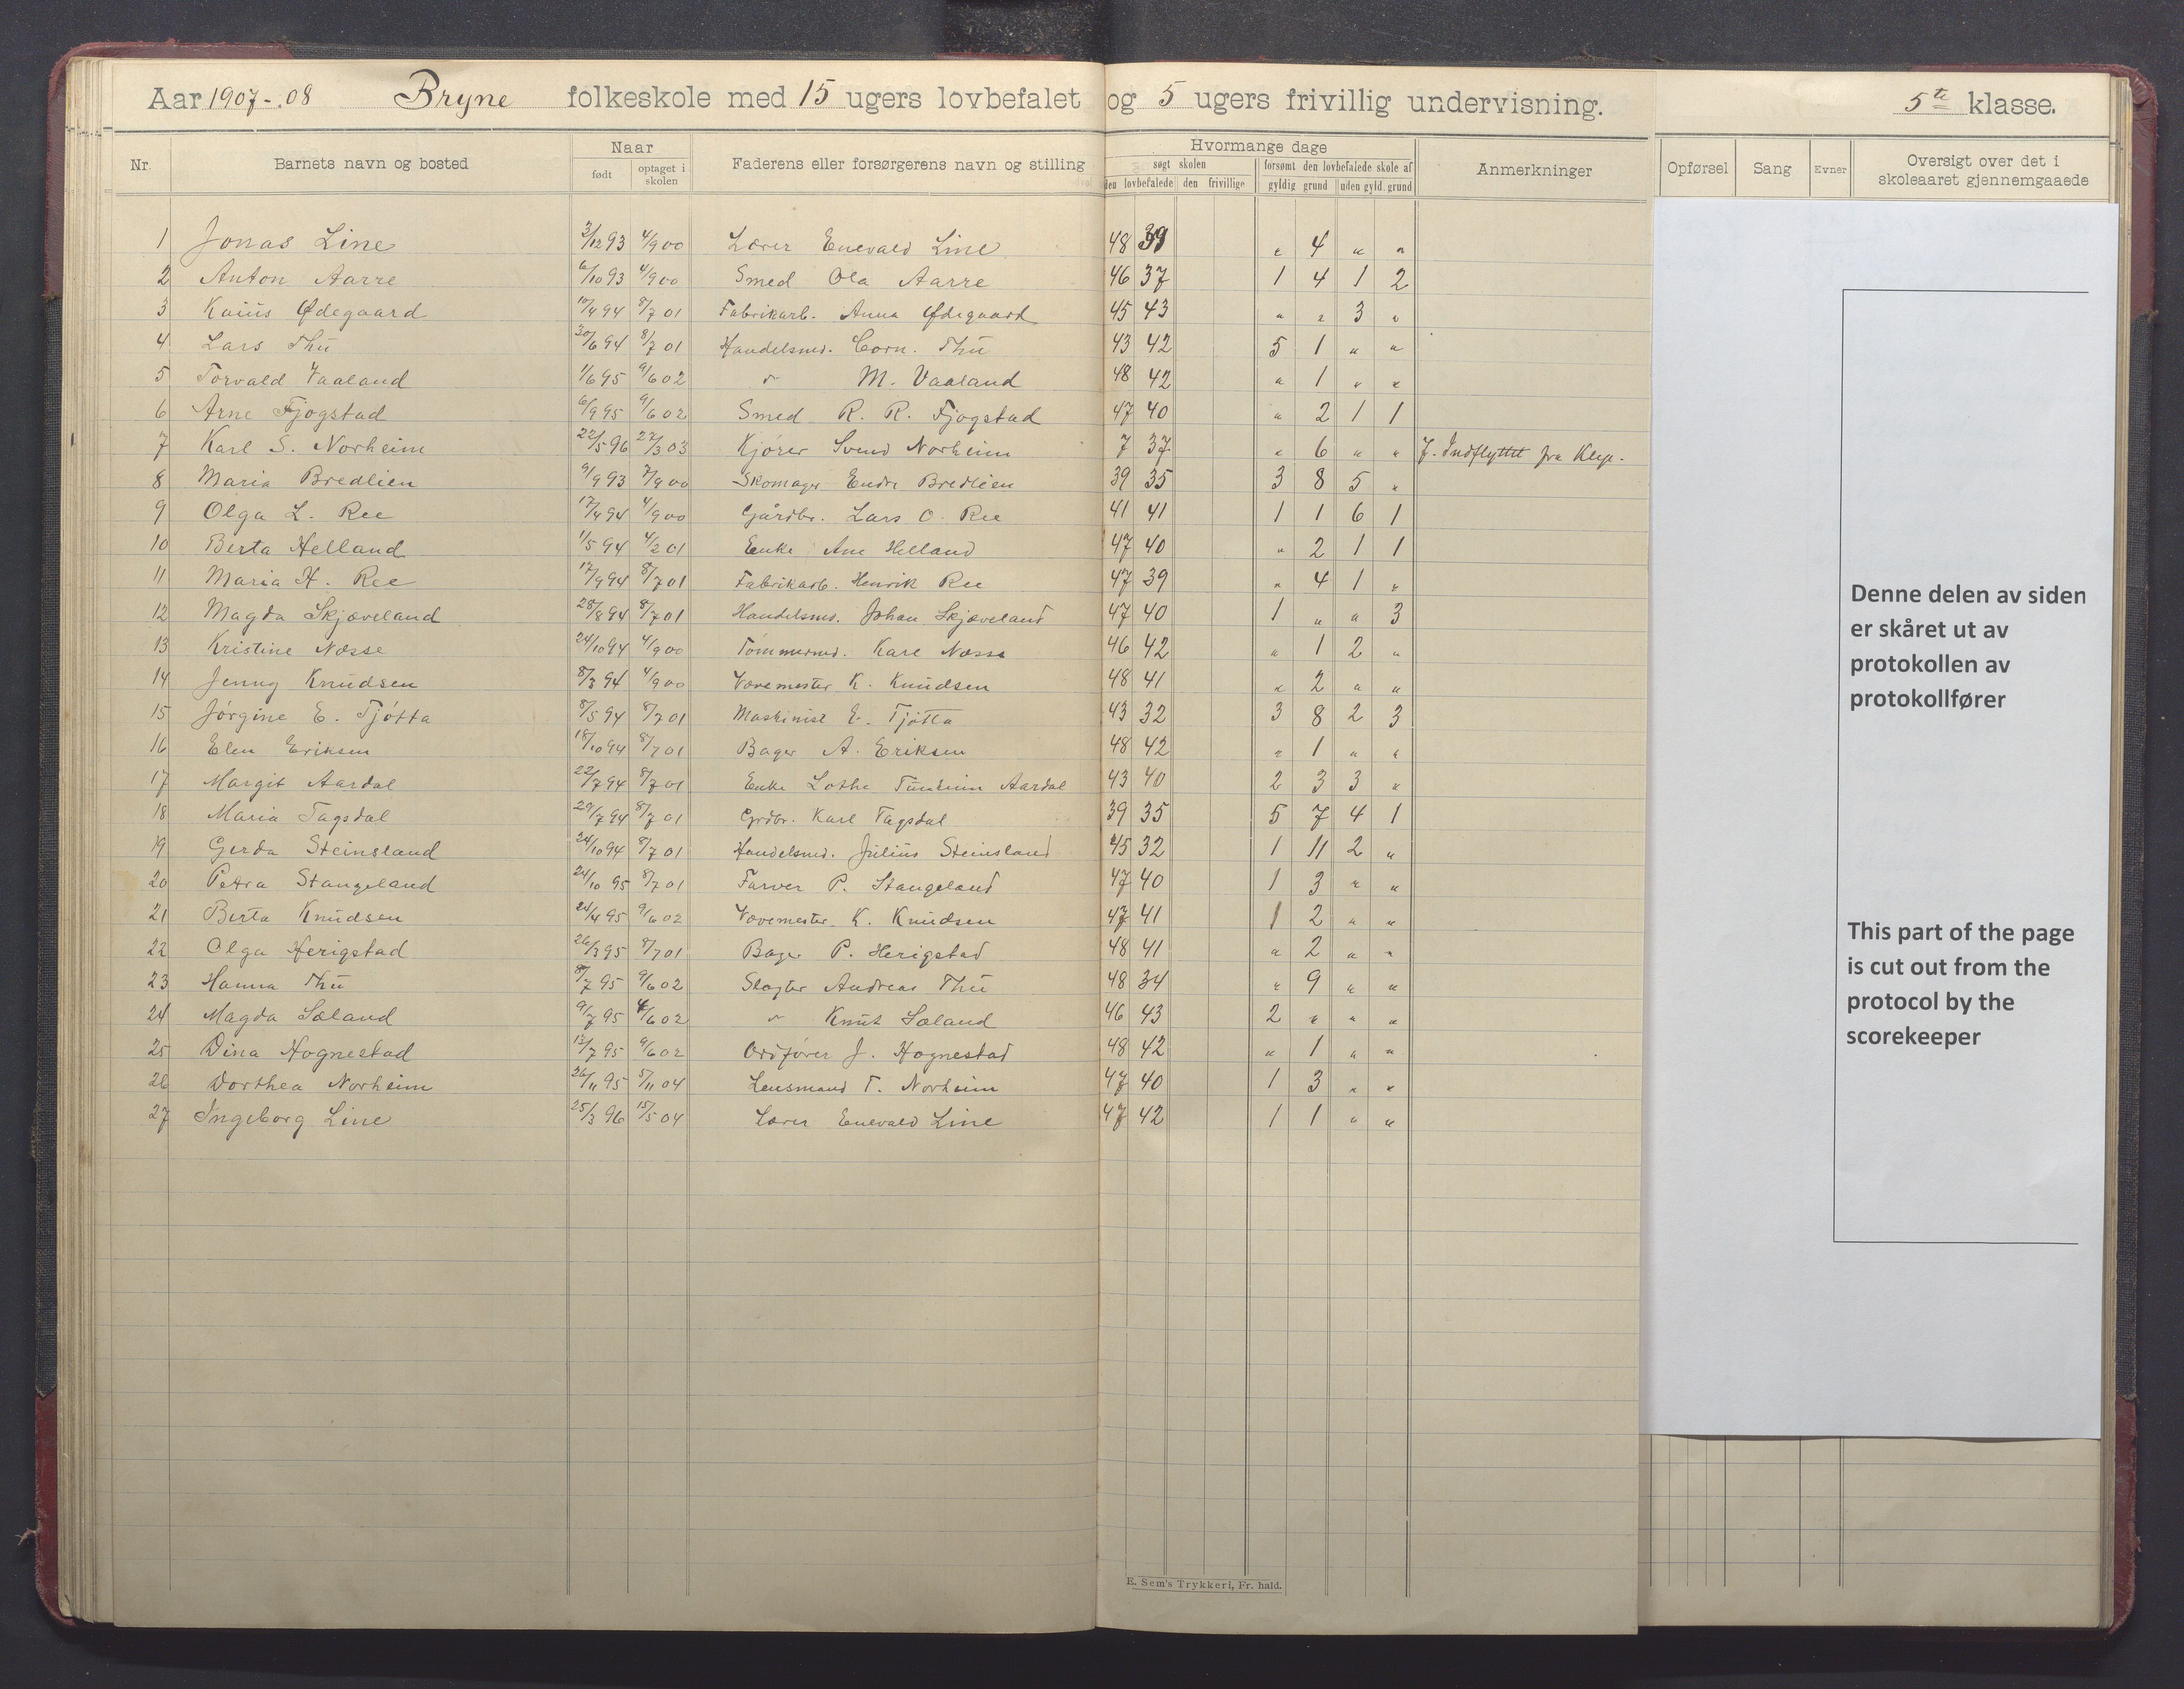 Aar 1907-08 Bryne folkeskole med 15 ugers lovbefalet og 5 ugers frivillig undervisning. 5te klasse.
Nr. Barnets navn og bosted Naar født optaget i skolen Faderens eller forsørgerens navn og stilling Hvormange dage søgt skolen den lovbefalede den frivillige forsømt den lovbefalede skole af gyldig grund uden gyld. grund Anmerkninger Opførsel Sang Evner Oversigt over det i skoleaaret gjennemgaaede
1 Jonas Line 3/12 93 4/9 00 Lærer Enevald Line 48 39 " 4 " "
2 Anton Aarre 6/10 93 4/9 00 Smed Ola Aarre 46 37 1 4 1 2
3 Kaius Ødegaard 17/4 94 8/7 01 Fabrikarb. Anna Ødegaard 45 43 " " 3 "
4 Lars Thu 30/6 94 8/7 01 Handelsmd. Corn. Thu 43 42 5 1 " "
5 Torvald Vaaland 1/6 95 9/6 02 " M. Vaaland 48 42 " 1 " "
6 Arne Fjogstad 6/9 95 9/6 02 Smed R. R. Fjogstad 47 40 " 2 1 1
7 Karl S. Norheim 22/5 96 27/3 03 Kjører Svend Norheim 7 37 " 6 " " 7. Indflyttet fra Klep.
8 Maria Bredlien 9/9 93 7/9 00 Skomager Endre Bredlien 39 35 3 8 5 "
9 Olga L. Ree 17/4 94 4/9 00 Gårdbr. Lars O. Ree 41 41 1 1 6 1
10 Berta Helland 1/5 94 4/2 01 Enke Ane Helland 47 40 " 2 1 1
11 Maria H. Ree 17/9 94 8/7 01 Fabrikarb. Henrik Ree 47 39 " 4 1 "
12 Magda Skjæveland 28/8 94 8/7 01 Handelsmd. Johan Skjæveland 47 40 1 " " 3
13 Kristine Næsse 24/10 94 4/9 00 Tømmermd. Karl Næsse 46 42 " 1 2 "
14 Jenny Knudsen 8/3 94 4/9 00 Vævemester K. Knudsen 48 41 " 2 " "
15 Jørgine E. Tjøtta 8/5 94 8/7 01 Maskinist E. Tjøtta 43 32 3 8 2 3
16 Elen Eriksen 18/10 94 8/7 01 Bager A. Eriksen 48 42 " 1 " "
17 Margit Aardal 22/7 94 8/7 01 Enke Lothe Aardal 43 40 2 3 3 "
18 Maria Tagsdal 29/7 94 8/7 01 Grdbr. Karl Tagsdal 39 35 5 7 4 1
19 Gerda Steinsland 24/10 94 8/7 01 Handelsmd. Julius Steinsland 45 32 1 11 2 "
20 Petra Stangeland 24/10 95 8/7 01 Farver P. Stangeland 47 40 1 3 " "
21 Berta Knudsen 24/4 95 9/6 02 Vævemester K. Knudsen 47 41 1 2 " "
22 Olga Herigstad 26/3 95 8/7 01 Bager P. Herigstad 48 41 " 2 " "
23 Hanna Thu 8/7 95 9/6 02 Slagter Andreas Thu 48 34 " 9 " "
24 Magda Sæland 9/7 95 /6 02 " Knut Sæland 46 43 2 " " "
25 Dina Hognestad 13/7 95 9/6 02 Ordfører J. Hognestad 48 42 " 1 " "
26 Dorthea Norheim 26/11 95 5/11 04 Lensmand T. Norheim 47 40 1 3 " "
27 Ingeborg Line 25/3 96 15/5 04 Lærer Enevald Line 47 42 1 1 " "
E. Sem's Trykkeri, Fr. hald.
Denne delen av siden
er skåret ut av
protokollen av
protokollfører
This part of the page
is cut out from the
protocol by the
scorekeeper